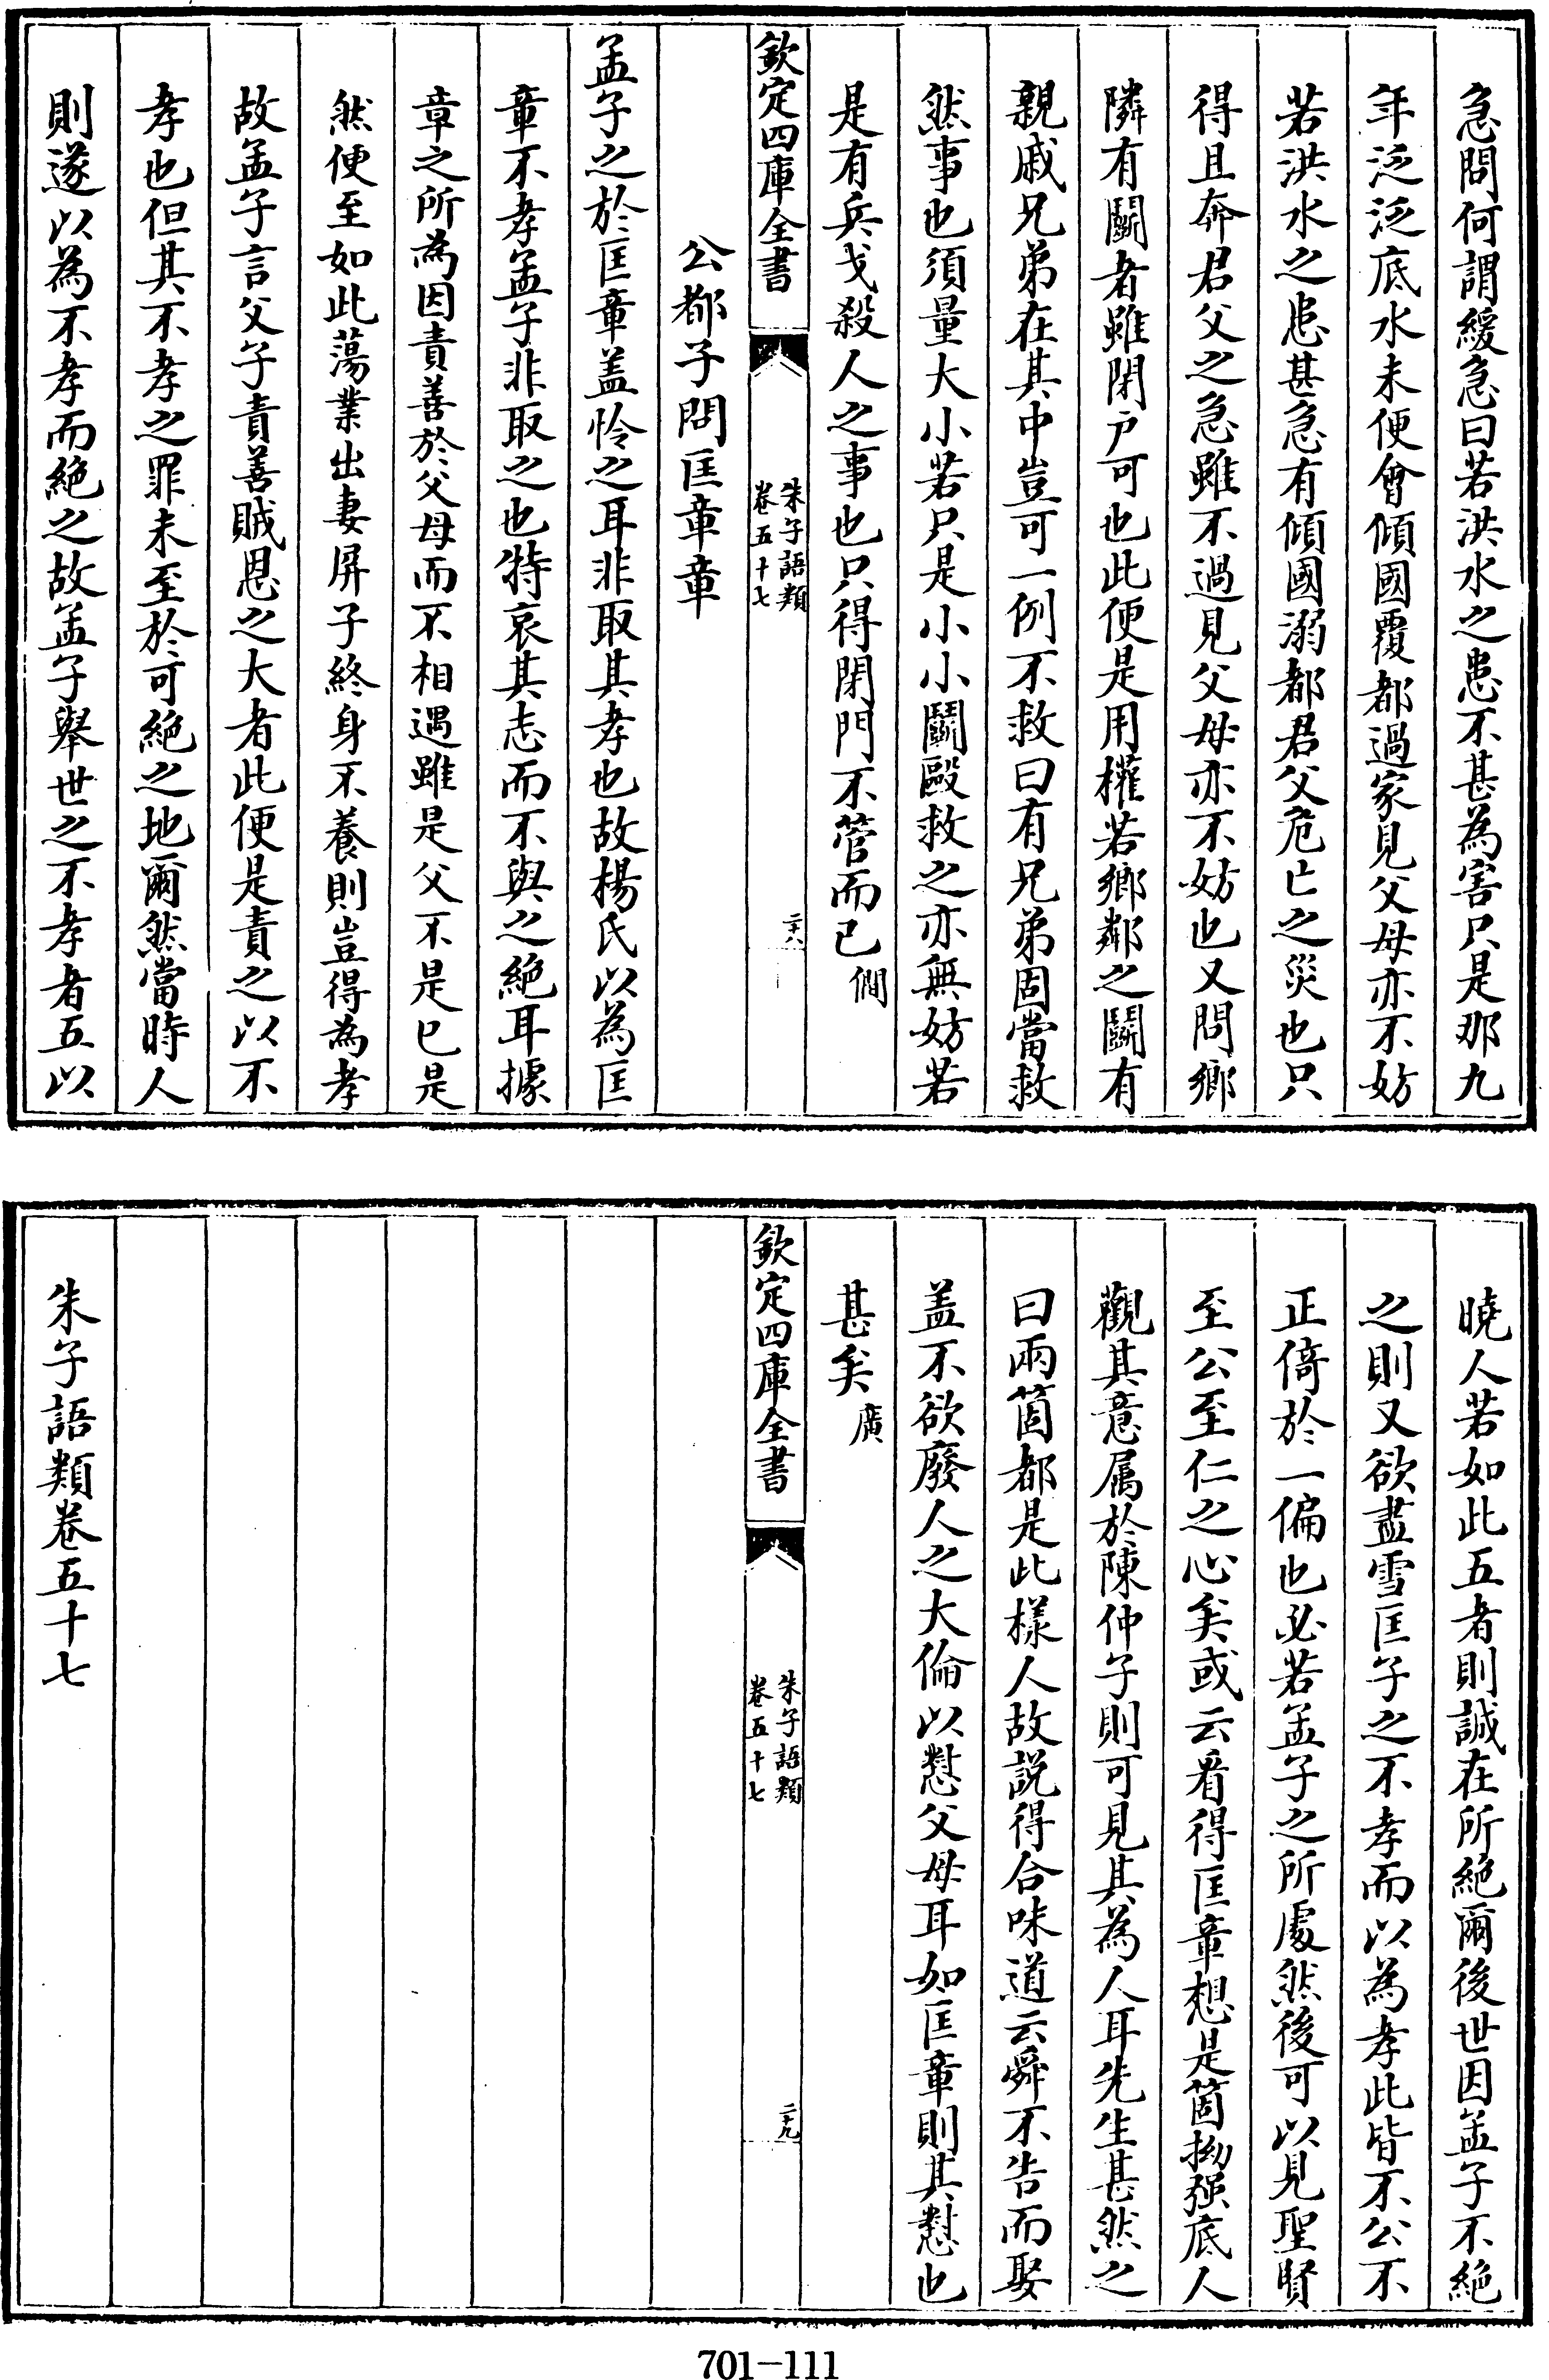 急問何謂緩急曰若洪水之患不甚為害只是那九
年泛泛底水未便會傾國覆都過家見父母亦不妨
若洪水之患甚急有傾國溺都君父危亡之災也只
得且奔君父之急雖不過見父母亦不妨也又問鄉
隣有鬬者雖閉戸可也此便是用權若鄉鄰之鬬有
親戚兄弟在其中豈可一例不救曰有兄弟固當救
然事也須量大小若只是小小鬬毆救之亦無妨若
是有兵戈殺人之事也只得閉門不管而已僩
欽定四庫全書
朱子語類
卷五十七
二十八
公都子問匡章章
孟子之於匡章盖怜之耳非取其孝也故楊氏以為匡
章不孝孟子非取之也特哀其志而不與之絶耳據
章之所為因責善於父母而不相遇雖是父不是已是
然便至如此蕩業出妻屏子終身不養則豈得為孝
故孟子言父子責善賊恩之大者此便是責之以不
孝也但其不孝之罪未至於可絶之地爾然當時人
則遂以為不孝而絶之故孟子舉世之不孝者五以
曉人若如此五者則誠在所絶爾後世因孟子不絶
之則又欲盡雪匡子之不孝而以為孝此皆不公不
正倚於一偏也必若孟子之所處然後可以見聖賢
至公至仁之心矣或云看得匡章想是箇拗强底人
觀其意属於陳仲子則可見其為人耳先生甚然之
曰兩箇都是此樣人故說得合味道云舜不告而娶
盖不欲廢人之大倫以懟父母耳如匡章則其懟也
甚矣廣
欽定四庫全書
朱子語類
卷五十七
二十九
朱子語類卷五十七
701-111